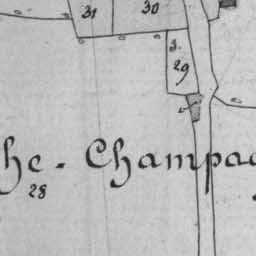 31 30
3.
29
he - Champag
28